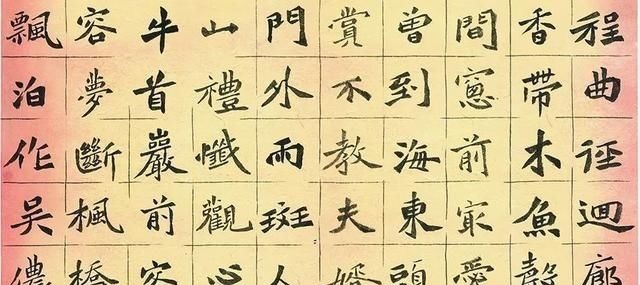 程曲徑迴廊
香帶木魚聲
間窓前冣愛
曾到海東頭
賞不教夫婿
門外雨斑人
山禮懺觀心
牛首巖前客
容夢斷楓橋
飄泊作吳儂